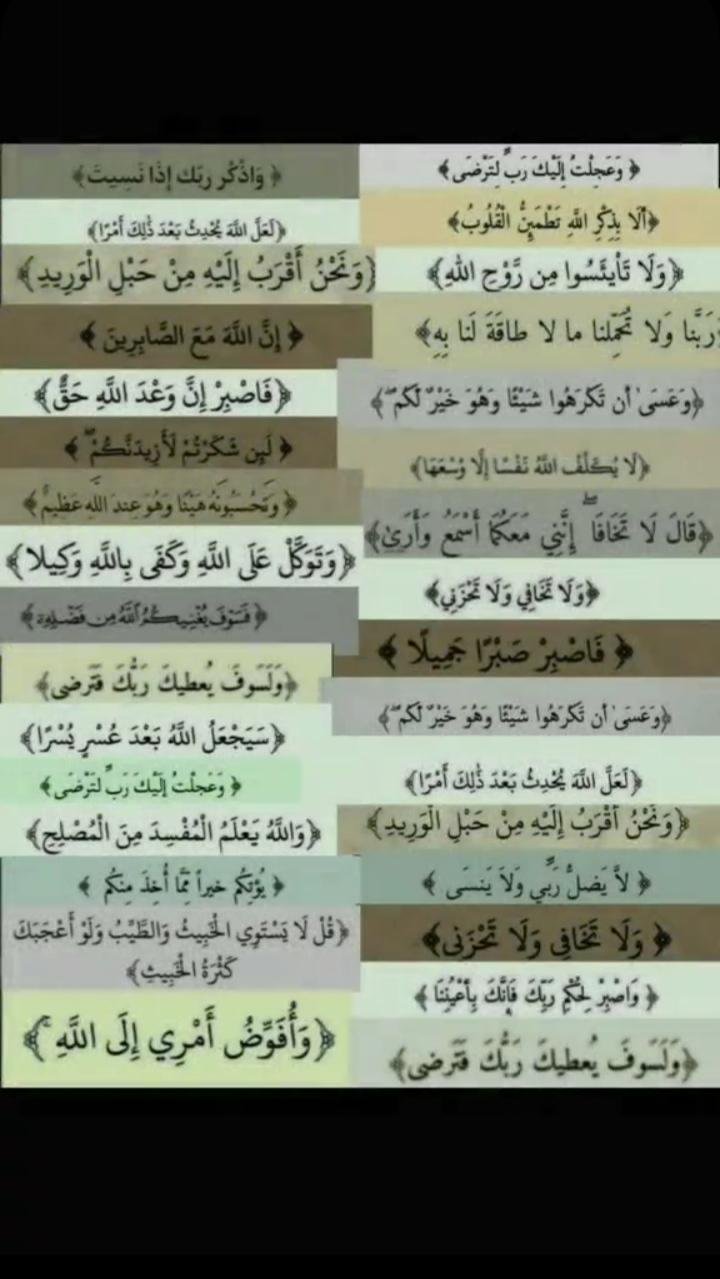 ﴿ وَعَجِلْتُ إِلَيْكَ رَبِّ لِتَرْضَى﴾
﴿أَلَا بِذِكْرِ اللَّهِ تَطْمَئِنُّ الْقُلُوبُ﴾
﴿وَلَا تَاْيْـَٔسُوا مِن رَّوْحِ اللَّهِ﴾
رَبَّنَا وَلا تُحَمِّلنا ما لا طاقَةَ لَنا بِهِ﴾
﴿وَعَسَىٰ أَن تَكْرَهُوا شَيْئًا وَهُوَ خَيْرٌ لَّكُمْ ۖ﴾
﴿لَا يُكَلِّفُ اللَّهُ نَفْسًا إِلَّا وُسْعَهَا﴾
﴿قَالَ لَا تَخَافَا ۖ إِنَّنِي مَعَكُمَا أَسْمَعُ وَأَرَىٰ﴾
﴿وَلَا تَخَافِي وَلَا تَحْزَنِي﴾
﴿ فَاصْبِرْ صَبْرًا جَمِيلًا ﴾
﴿وَعَسَىٰ أَن تَكْرَهُوا شَيْئًا وَهُوَ خَيْرٌ لَّكُمْ ۖ﴾
﴿لَعَلَّ اللَّهَ يُحْدِثُ بَعْدَ ذَٰلِكَ أَمْرًا﴾
﴿وَنَحْنُ أَقْرَبُ إِلَيْهِ مِنْ حَبْلِ الْوَرِيدِ﴾
﴿ لاَّ يَضِلُّ رَبِّي وَلاَ يَنسَى ﴾
﴿ وَلَا تَخَافِى وَلَا تَحْزَنِى ﴾
﴿ وَاصْبِرْ لِحُكْمِ رَبِّكَ فَإِنَّكَ بِأَعْيُنِنَا ﴾
﴿وَلَسَوفَ يُعطيكَ رَبُّكَ فَتَرضى﴾
﴿ وَاذْكُر رَبَّكَ إِذَا نَسِيتَ ﴾
﴿لَعَلَّ اللَّهَ يُحْدِثُ بَعْدَ ذَٰلِكَ أَمْرًا﴾
﴿وَنَحْنُ أَقْرَبُ إِلَيْهِ مِنْ حَبْلِ الْوَرِيدِ﴾
﴿ إِنَّ اللَّهَ مَعَ الصَّابِرِينَ ﴾
﴿فَاصْبِرْ إِنَّ وَعْدَ اللَّهِ حَقٌّ﴾
﴿ لَئِن شَكَرْتُمْ لَأَزِيدَنَّكُمْ ۖ ﴾
﴿ وَتَحْسَبُونَهُ هَيِّنًا وَهُوَ عِندَ اللَّهِ عَظِيمٌ﴾
﴿وَتَوَكَّلْ عَلَى اللَّهِ وَكَفَى بِاللَّهِ وَكِيلا﴾
﴿ فَسَوْفَ يُغْنِيكُمُ ٱللَّهُ مِن فَضْلِهِۦ ﴾
﴿وَلَسَوفَ يُعطيكَ رَبُّكَ فَتَرضى﴾
﴿سَيَجْعَلُ اللَّهُ بَعْدَ عُسْرٍ يُسْرًا﴾
﴿ وَعَجِلْتُ إِلَيْكَ رَبِّ لِتَرْضَى﴾
﴿وَاللَّهُ يَعْلَمُ الْمُفْسِدَ مِنَ الْمُصْلِحِ﴾
﴿ يُؤْتِكُمْ خيراً مِّمَّا أُخِذَ مِنكُم ﴾
﴿قُلْ لَا يَسْتَوِي الْخَبِيثُ وَالطَّيِّبُ وَلَوْ أَعْجَبَكَ
كَثْرَةُ الْخَبِيثِ﴾
﴿وَأُفَوِّضُ أَمْرِي إِلَى اللَّهِ ۚ﴾